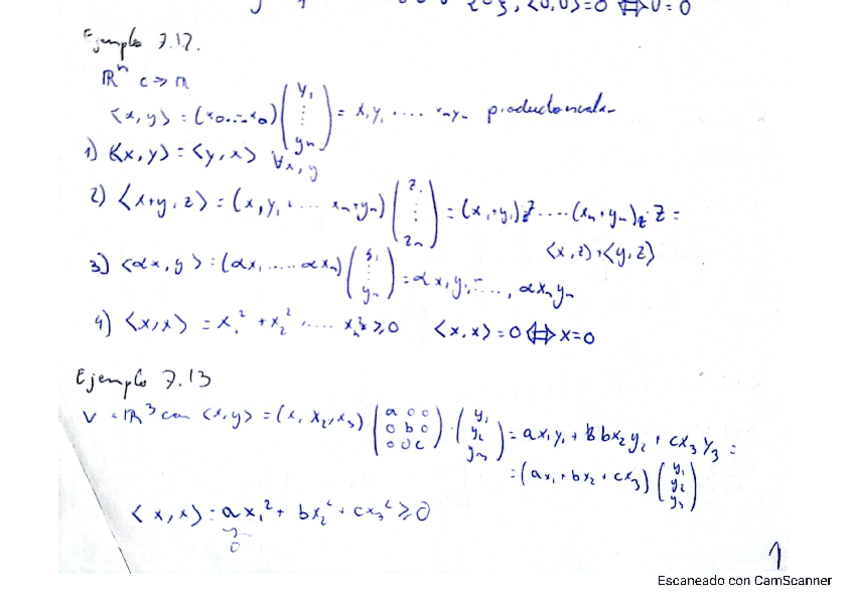 <0,0>=0 ⟺ U=0
Ejemplo 7.12.
ℝⁿ
<x,y> = (y₁ ⋮ yₙ) = x₁y₁ .... xₙyₙ
1) <x,y> = <y,x> ∀x,y
2) <x+y,z> = (z₁ ⋮ zₙ) = (x₁+y₁)z .... (xₙ+yₙ)z =
<x,z>+<y,z>
3) <αx,y> = (αx₁ ..... αxₙ) (y₁ ⋮ yₙ) = αx₁y₁ ..., αxₙyₙ
4) <x,x> = x₁² + x₂² ..... xₙ² ≥ 0 <x,x> = 0 ⟺ x=0
Ejemplo 7.13
V = ℝ³ con <x,y> = (x₁ x₂, x₃) (a 0 0 / 0 b 0 / 0 0 c) · (y₁ y₂ y₃) = ax₁y₁ + bx₂y₂ + cx₃y₃ =
= (ax₁ + bx₂ + cx₃) (y₁ y₂ y₃)
<x,x> = ax₁² + bx₂² + cx₃² ≥ 0
0
1
Escaneado con CamScanner